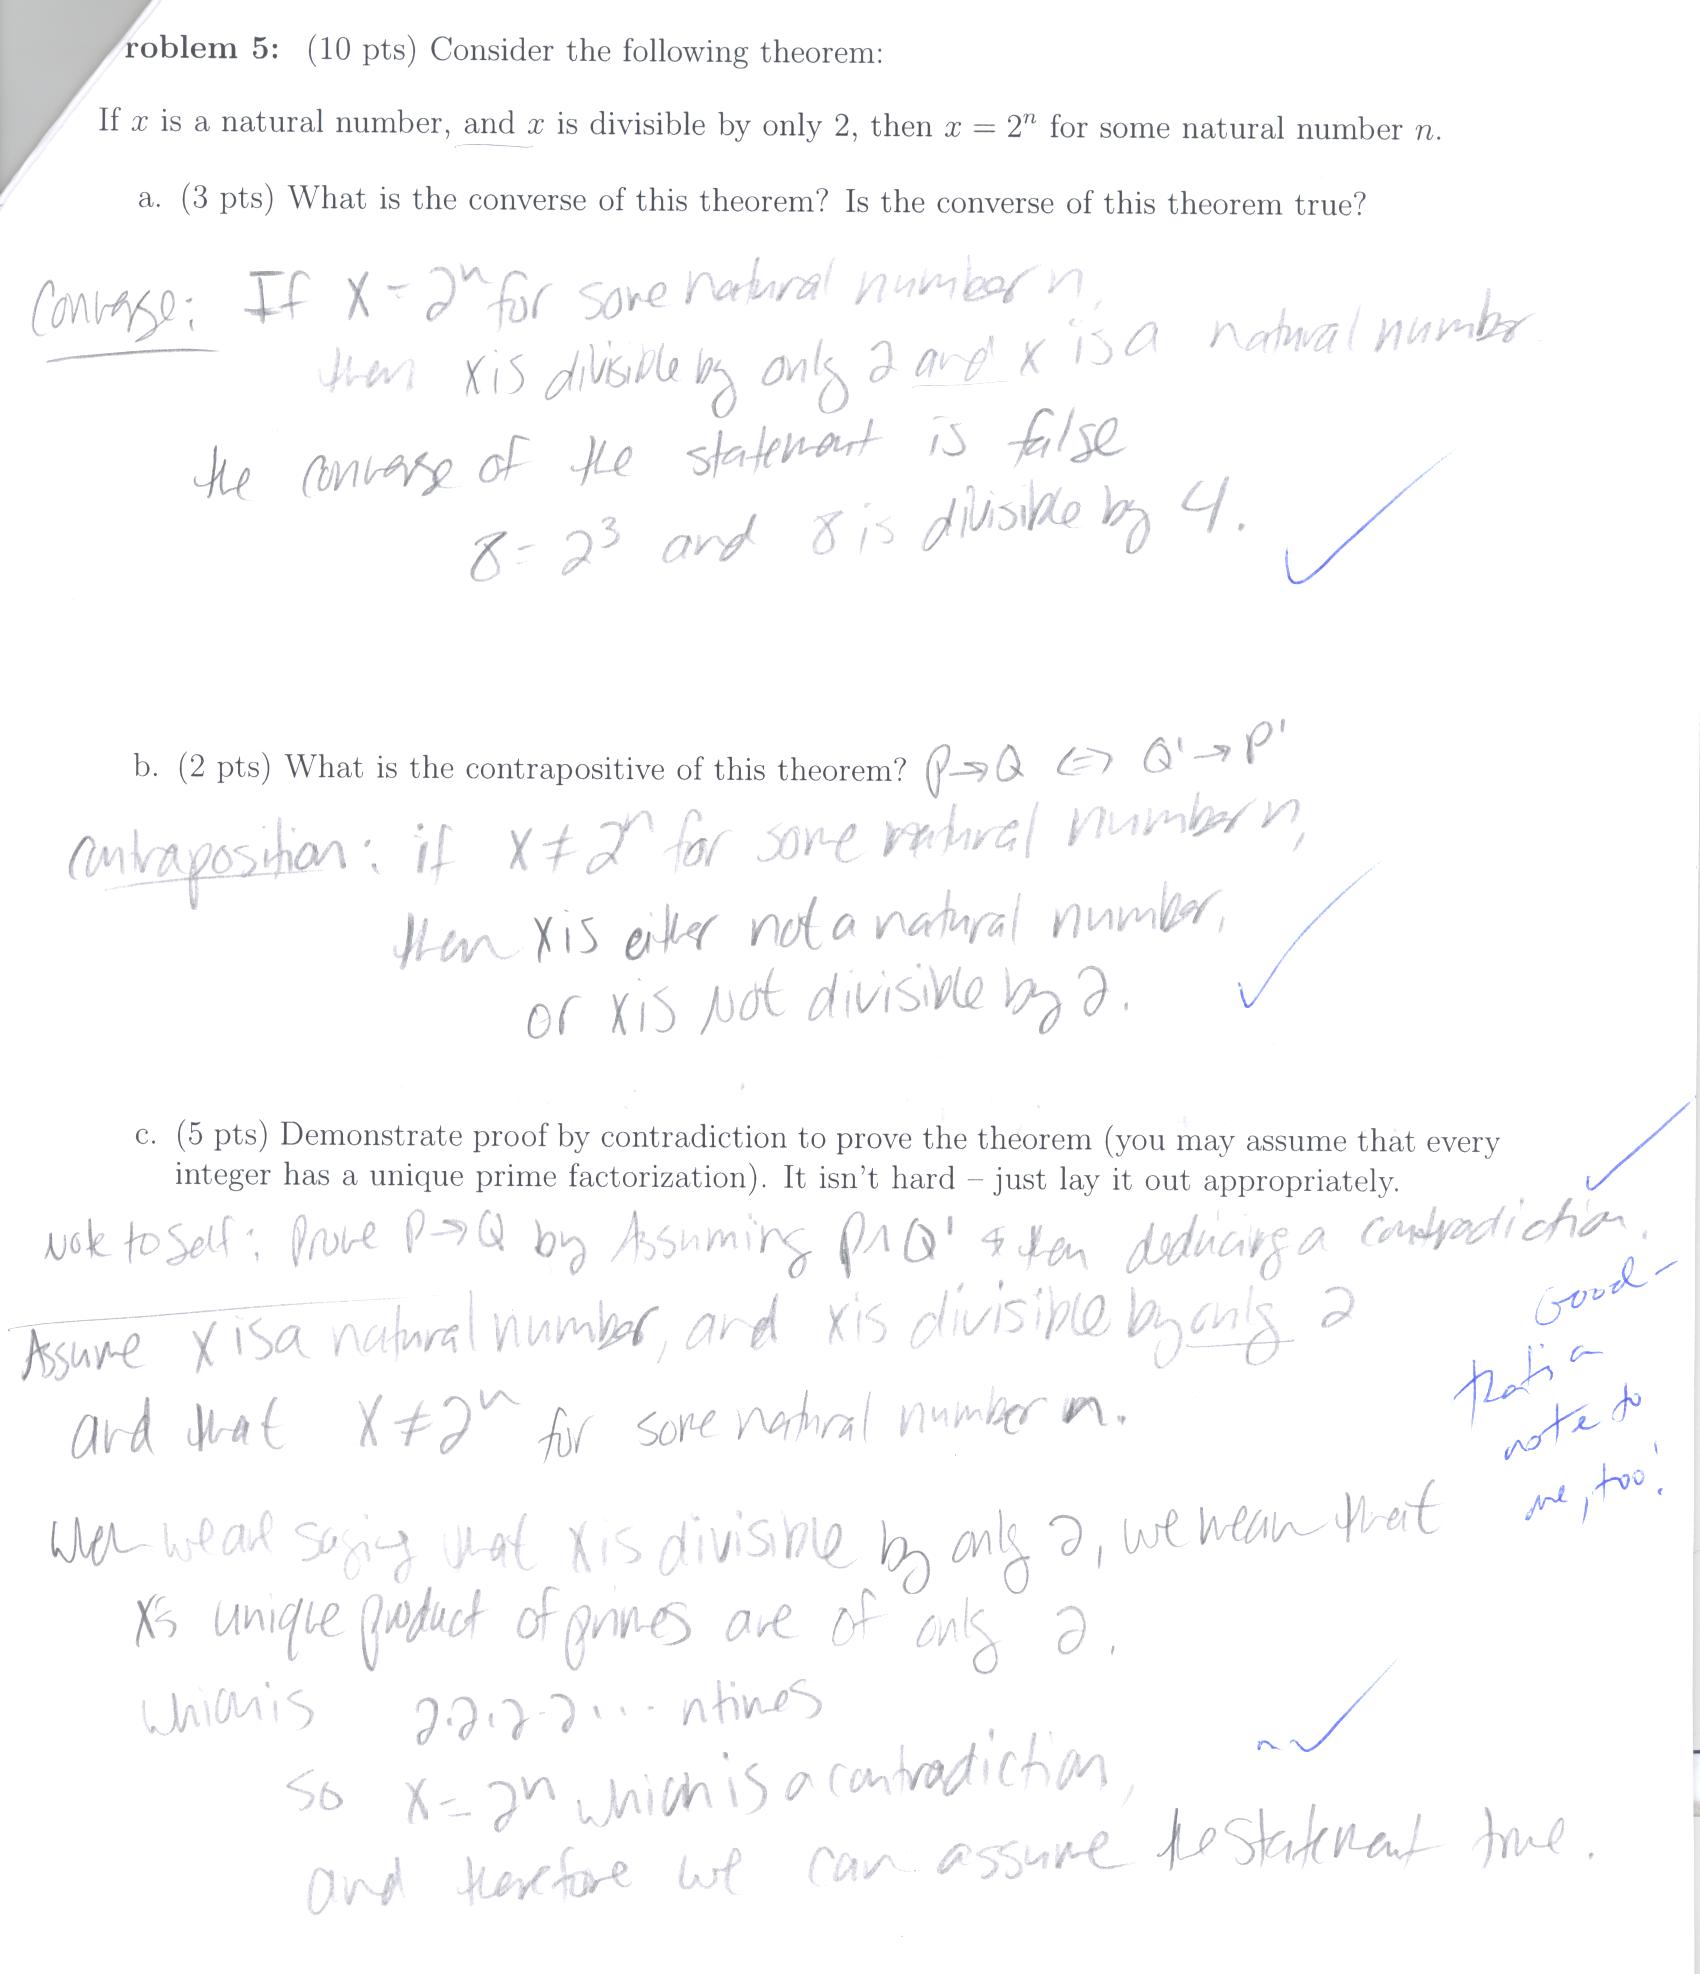 roblem 5: (10 pts) Consider the following theorem:
If x is a natural number, and x is divisible by only 2, then x = 2ⁿ for some natural number n.
a. (3 pts) What is the converse of this theorem? Is the converse of this theorem true?
Converse: If x = 2ⁿ for some natural number n,
then x is divisible by only 2 and x is a natural number
the converse of the statement is false
8 = 2³ and 8 is divisible by 4.
b. (2 pts) What is the contrapositive of this theorem? P→Q ⇔ Q'→P'
Contraposition: if x ≠ 2ⁿ for some natural number n,
then x is either not a natural number,
or x is Not divisible by 2.
c. (5 pts) Demonstrate proof by contradiction to prove the theorem (you may assume that every
integer has a unique prime factorization). It isn't hard – just lay it out appropriately.
Note to Self: Prove P→Q by Assuming P∧Q' & then deducing a contradiction.
Good-
that's a
note to
me, too!
Assume x is a natural number, and x is divisible by only 2
and that x ≠ 2ⁿ for some natural number n.
When we are saying that x is divisible by only 2, we mean that
x's unique product of primes are of only 2,
which is 2·2·2·2... n times
So x = 2ⁿ which is a contradiction,
and therefore we can assume the statement true.